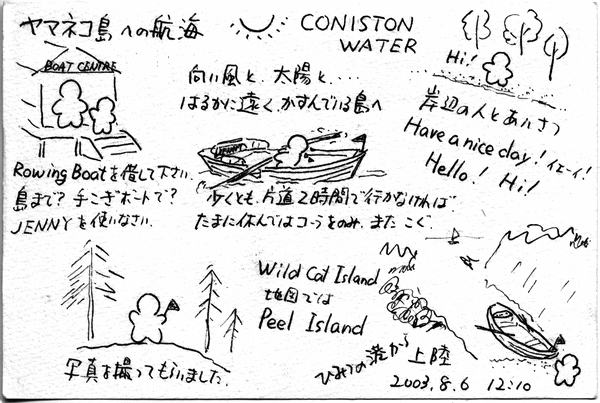 ヤマネコ島への航海
CONISTON
WATER
BOAT CENTRE
Rowing Boatを借して下さい.
島まで? 手こぎボートで?
JENNYを使いなさい.
向い風と、太陽と・・・・
はるかに遠く、かすんでいる島へ
少くとも、片道2時間で行かなければ.
たまに休んではコーラをのみ、また こぐ.
Hi!
岸辺の人とあいさつ
Have a nice day! イエーイ!
Hello! Hi!
写真を撮ってもらいました.
Wild Cat Island
地図では
Peel Island
ひみつの港から 上陸
2003.8.6 12:10